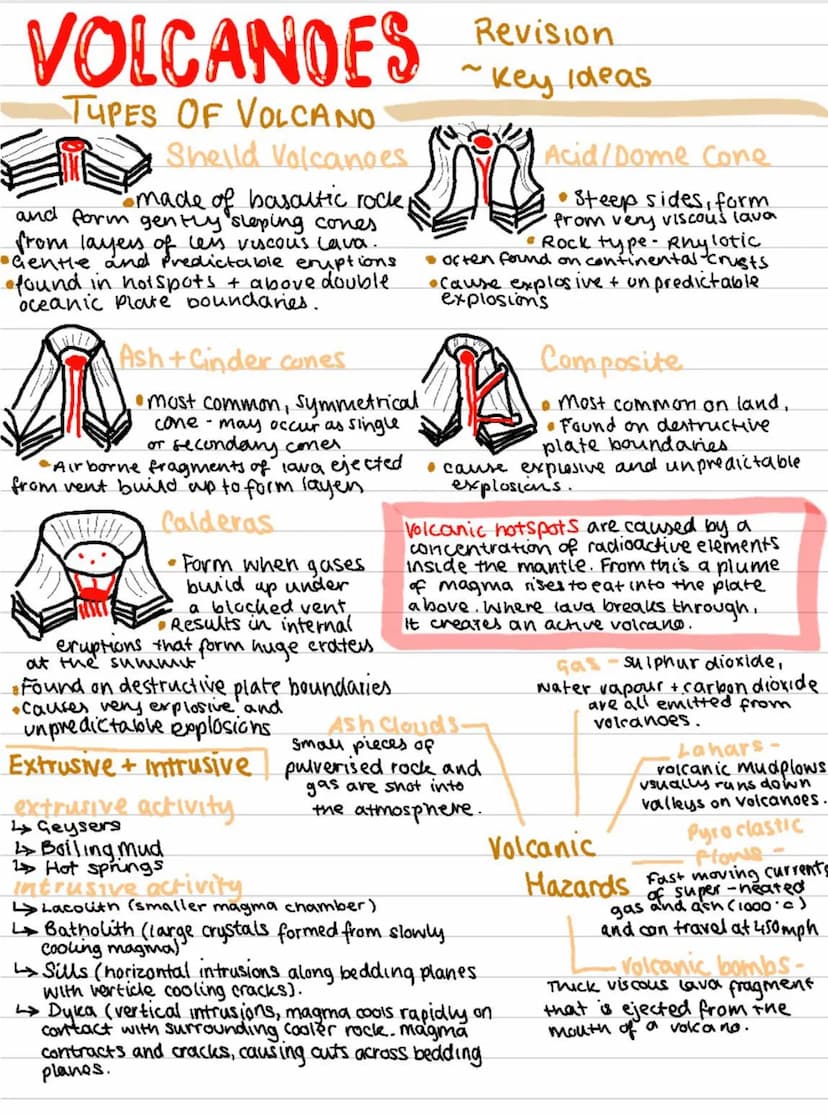 VOLCANOES
Revision
~ Key Ideas
TYPES OF VOLCANO
Sheild Volcanoes
•made of basaltic rock
and form gently sloping cones
from layers of less viscous lava.
•Gentle and predictable eruptions
•found in hotspots + above double
oceanic plate boundaries.
Acid/Dome Cone
• Steep sides, form
from very viscous lava
• Rock type - Rhylotic
• often found on continental crusts
•cause explosive + unpredictable
explosions
Ash + Cinder cones
•most common, symmetrical
cone - may occur as single
or secondary cones
•Airborne fragments of lava ejected
from vent build up to form layers
Composite
• Most common on land,
• Found on destructive
plate boundaries
• cause explosive and unpredictable
explosions.
Calderas
• Form when gases
build up under
a blocked vent
• Results in internal
eruptions that form huge craters
at the summit
•Found on destructive plate boundaries
•Causes very explosive and
unpredictable explosions
Volcanic hotspots are caused by a
concentration of radioactive elements
inside the mantle. From this a plume
of magma rises to eat into the plate
above. Where lava breaks through,
it creates an active volcano.
Extrusive + intrusive
extrusive activity
↳ Geysers
↳ Boiling Mud
↳ Hot springs
Intrusive activity
↳ Lacolith (smaller magma chamber)
↳ Batholith (large crystals formed from slowly
cooling magma)
↳ Sills (horizontal intrusions along bedding planes
with verticle cooling cracks).
↳ Dyka (vertical intrusions, magma cools rapidly on
contact with surrounding cooler rock. magma
contracts and cracks, causing cuts across bedding
planes.
Volcanic
Hazards
Ash Clouds
Small pieces of
pulverised rock and
gas are shot into
the atmosphere.
Gas - sulphur dioxide,
water vapour + carbon dioxide
are all emitted from
volcanoes.
Lahars -
volcanic mudflows
usually runs down
valleys on volcanoes.
Pyroclastic
flows -
Fast moving currents
of super-heated
gas and ash (1000°c)
and can travel at 450mph
Volcanic bombs -
Thick viscous lava fragment
that is ejected from the
mouth of a volcano.